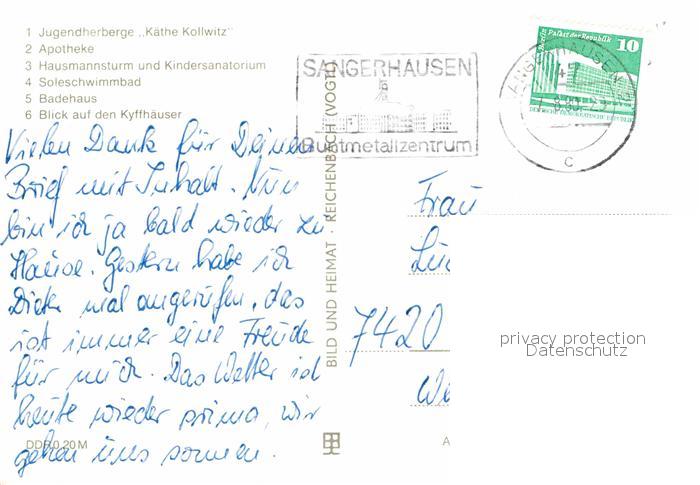 1 Jugendherberge „Käthe Kollwitz"
2 Apotheke
3 Hausmannsturm und Kindersanatorium
4 Soleschwimmbad
5 Badehaus
6 Blick auf den Kyffhäuser
Vielen Dank für Deinen
Brief mit Inhalt. Nun
bin ich ja bald wieder zu
Hause. Gestern habe ich
Dieter mal angerufen, das
ist immer eine Freude
für mich. Das Wetter ist
heute wieder prima, wir
gehen uns sonnen.
DDR 0,20 M
BILD UND HEIMAT · REICHENBACH (VOGTL)
SANGERHAUSEN
Buntmetallzentrum
Berlin, Palast der Republik
10
DEUTSCHE DEMOKRATISCHE REPUBLIK
SANGERHAUSEN
C
Frau
7420
privacy protection
Datenschutz
A